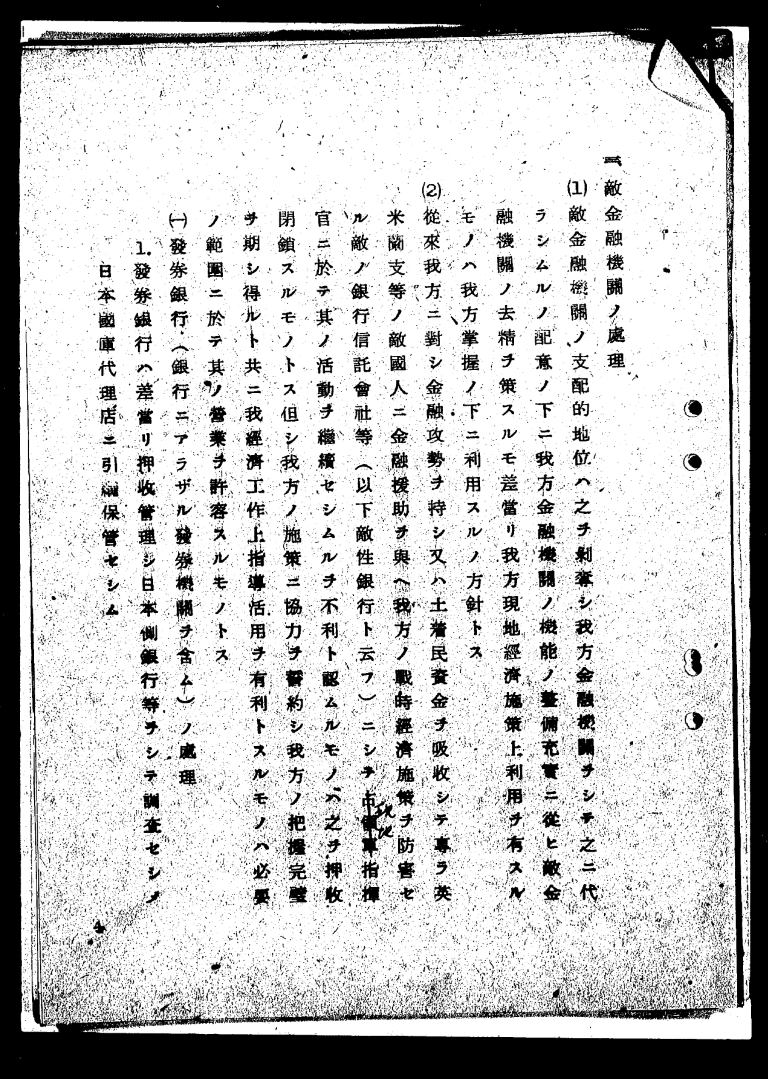 敵金融機關ノ處理
(1)敵金融機關ノ支配的地位ハ之ヲ剝奪シ我方金融機關ヲシテ之ニ代
ラシムルノ配意ノ下ニ我方金融機關ノ機能ノ整備充實ニ從ヒ敵金
融機關ノ去精ヲ策スルモ差當リ我方現地經濟施策上利用ヲ有スル
モノハ我方掌握ノ下ニ利用スルノ方針トス
(2)從來我方ニ對シ金融攻勢ヲ持シ又ハ土着民資金ヲ吸收シテ專ラ英
米蘭支等ノ敵國人ニ金融援助ヲ與ヘ我方ノ戰時經濟施策ヲ防害セ
ル敵ノ銀行信託會社等(以下敵性銀行ト云フ)ニシテ占領軍指揮
現地
官ニ於テ其ノ活動ヲ繼續セシムルヲ不利ト認ムルモノハ之ヲ押收
閉鎖スルモノトス但シ我方ノ施策ニ協力ヲ誓約シ我方ノ把握完璧
ヲ期シ得ルト共ニ我經濟工作上指導活用ヲ有利トスルモノハ必要
ノ範圍ニ於テ其ノ營業ヲ許容スルモノトス
㈠發券銀行(銀行ニアラザル發券機關ヲ含ム)ノ處理
1.發券銀行ハ差當リ押收管理シ日本側銀行等ヲシテ調査セシメ
日本國庫代理店ニ引繼保管セシム